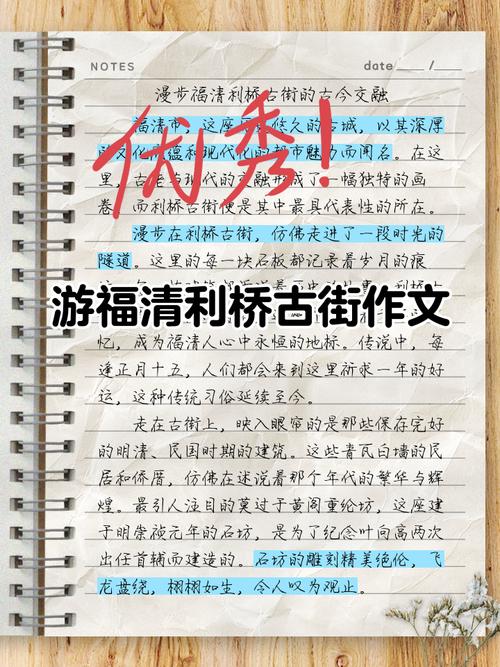 NOTES
date / 
漫步福清利桥古街的古今交融
优秀!
福清市,这座悠久的古城,以其深厚
文化底蕴和现代化的都市魅力而闻名。在这
里,古老与现代的交融形成了一幅独特的画
卷,而利桥古街便是其中最具代表性的所在。
漫步在利桥古街,仿佛走进了一段时光的
隧道。这里的每一块石板都记录着岁月的痕
游福清利桥古街作文
忆,成为福清人心中永恒的地标。传说中,每
逢正月十五,人们都会来到这里祈求一年的好
运,这种传统习俗延续至今。
走在古街上,映入眼帘的是那些保存完好
的明清、民国时期的建筑。这些青瓦白墙的民
居和侨厝,仿佛在述说着那个年代的繁华与辉
煌。最引人注目的莫过于黄阁重纶坊,这座建
于明崇祯元年的石坊,是为了纪念叶向高两次
出任首辅而建造的。石坊的雕刻精美绝伦,飞
龙盘绕,栩栩如生,令人叹为观止。